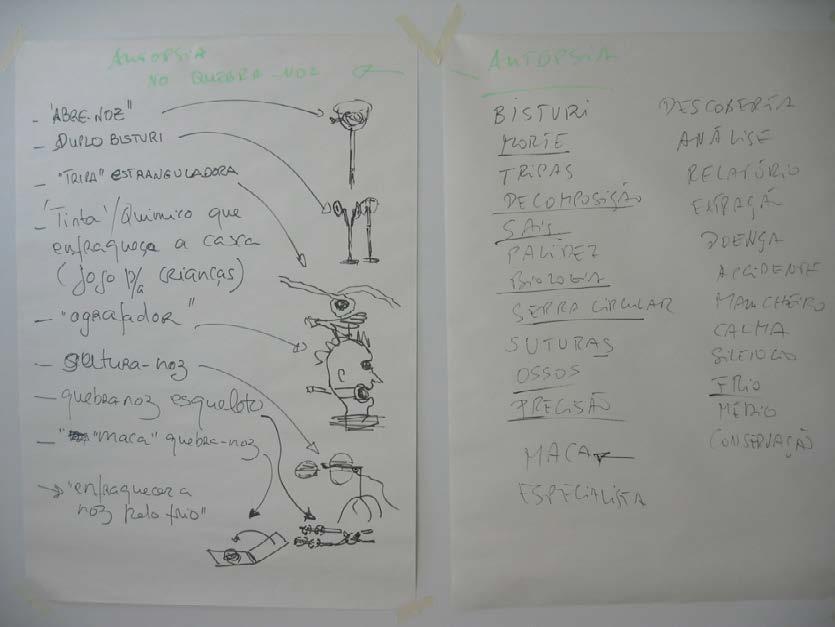 AUTOPSIA
NO QUEBRA-NOZ
- "ABRE-NOZ"
- DUPLO BISTURI
- "TRIPA" ESTRANGULADORA
- "Tinta"/Químico que
enfraqueça a casca
(jogo p/a crianças)
- "agrafador"
- SUTURA-noz
- quebra noz esqueleto
- "maca" quebra-noz
→ "enfraquecer a
noz pelo frio"
AUTOPSIA
BISTURI
MORTE
TRIPAS
DECOMPOSIÇÃO
SAIS
PALIDEZ
BIOLOGIA
SERRA CIRCULAR
SUTURAS
OSSOS
PRECISÃO
MACA
ESPECIALISTA
DESCOBERTA
ANÁLISE
RELATÓRIO
EXTRAÇÃO
DOENÇA
ACIDENTE
MAU CHEIRO
CALMA
SILENCIO
FRIO
MÉDIO
CONSERVAÇÃO